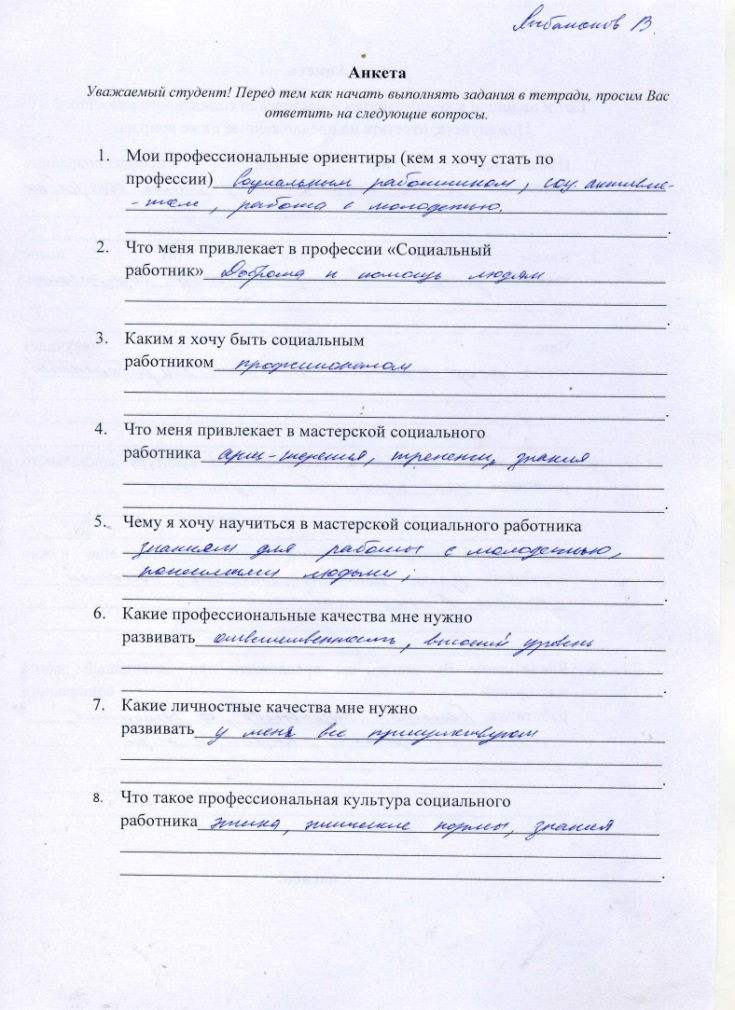 В.
Анкета
Уважаемый студент! Перед тем как начать выполнять задания в тетради, просим Вас
ответить на следующие вопросы.
1. Мои профессиональные ориентиры (кем я хочу стать по
профессии) социальным работником, соц.
работа с молодежью.
2. Что меня привлекает в профессии «Социальный
работник» Доброта и помощь людям
3. Каким я хочу быть социальным
работником профессионалом
4. Что меня привлекает в мастерской социального
работника арт-терапия, тренинги, знания
5. Чему я хочу научиться в мастерской социального работника
знаниям для работы с молодежью,
пожилыми людьми;
6. Какие профессиональные качества мне нужно
развивать ответственность, высокий уровень
7. Какие личностные качества мне нужно
развивать у меня все присутствуют
8. Что такое профессиональная культура социального
работника этика, этические нормы, знания